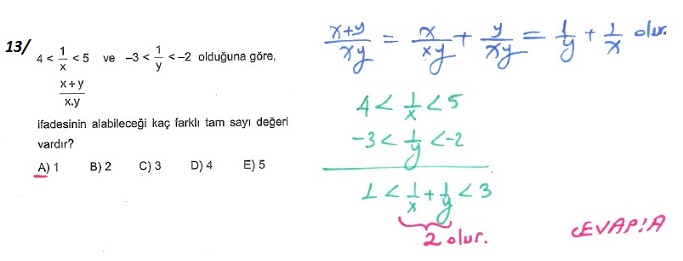 13/
4 < 1/x < 5 ve -3 < 1/y < -2 olduğuna göre,
x + y / x.y
ifadesinin alabileceği kaç farklı tam sayı değeri
vardır?
A) 1 B) 2 C) 3 D) 4 E) 5
x+y/xy = x/xy + y/xy = 1/y + 1/x olur.
4 < 1/x < 5
-3 < 1/y < -2
1 < 1/x + 1/y < 3
2 olur.
CEVAP:A